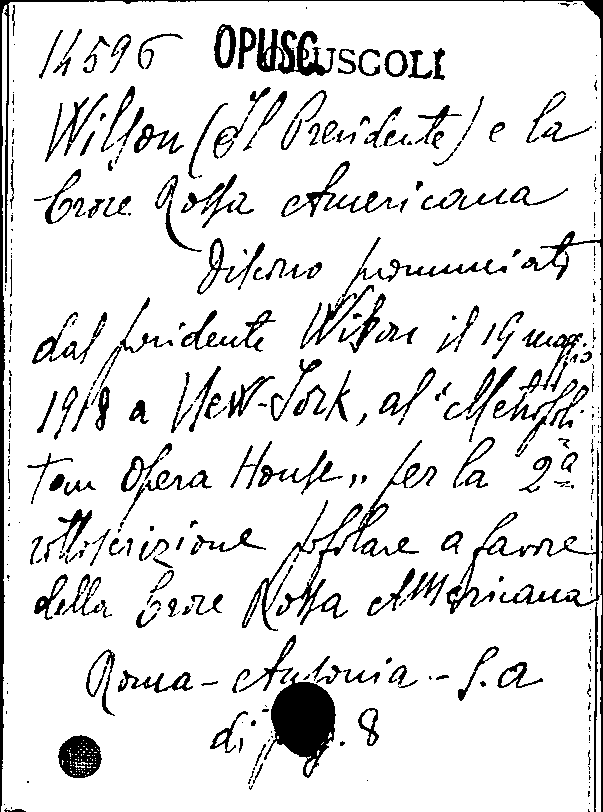 14596 OPUSC. OPUSCOLI
Wilson (Il Presidente) e la
Croce Rossa Americana
Discorso pronunciato
dal presidente Wilson il 19 maggio
1918 a New-York, al "Metropoli
tan Opera House" per la 2a
sottoscrizione popolare a favore
della Croce Rossa Americana
Roma - Ausonia - S.a
di pag. 8